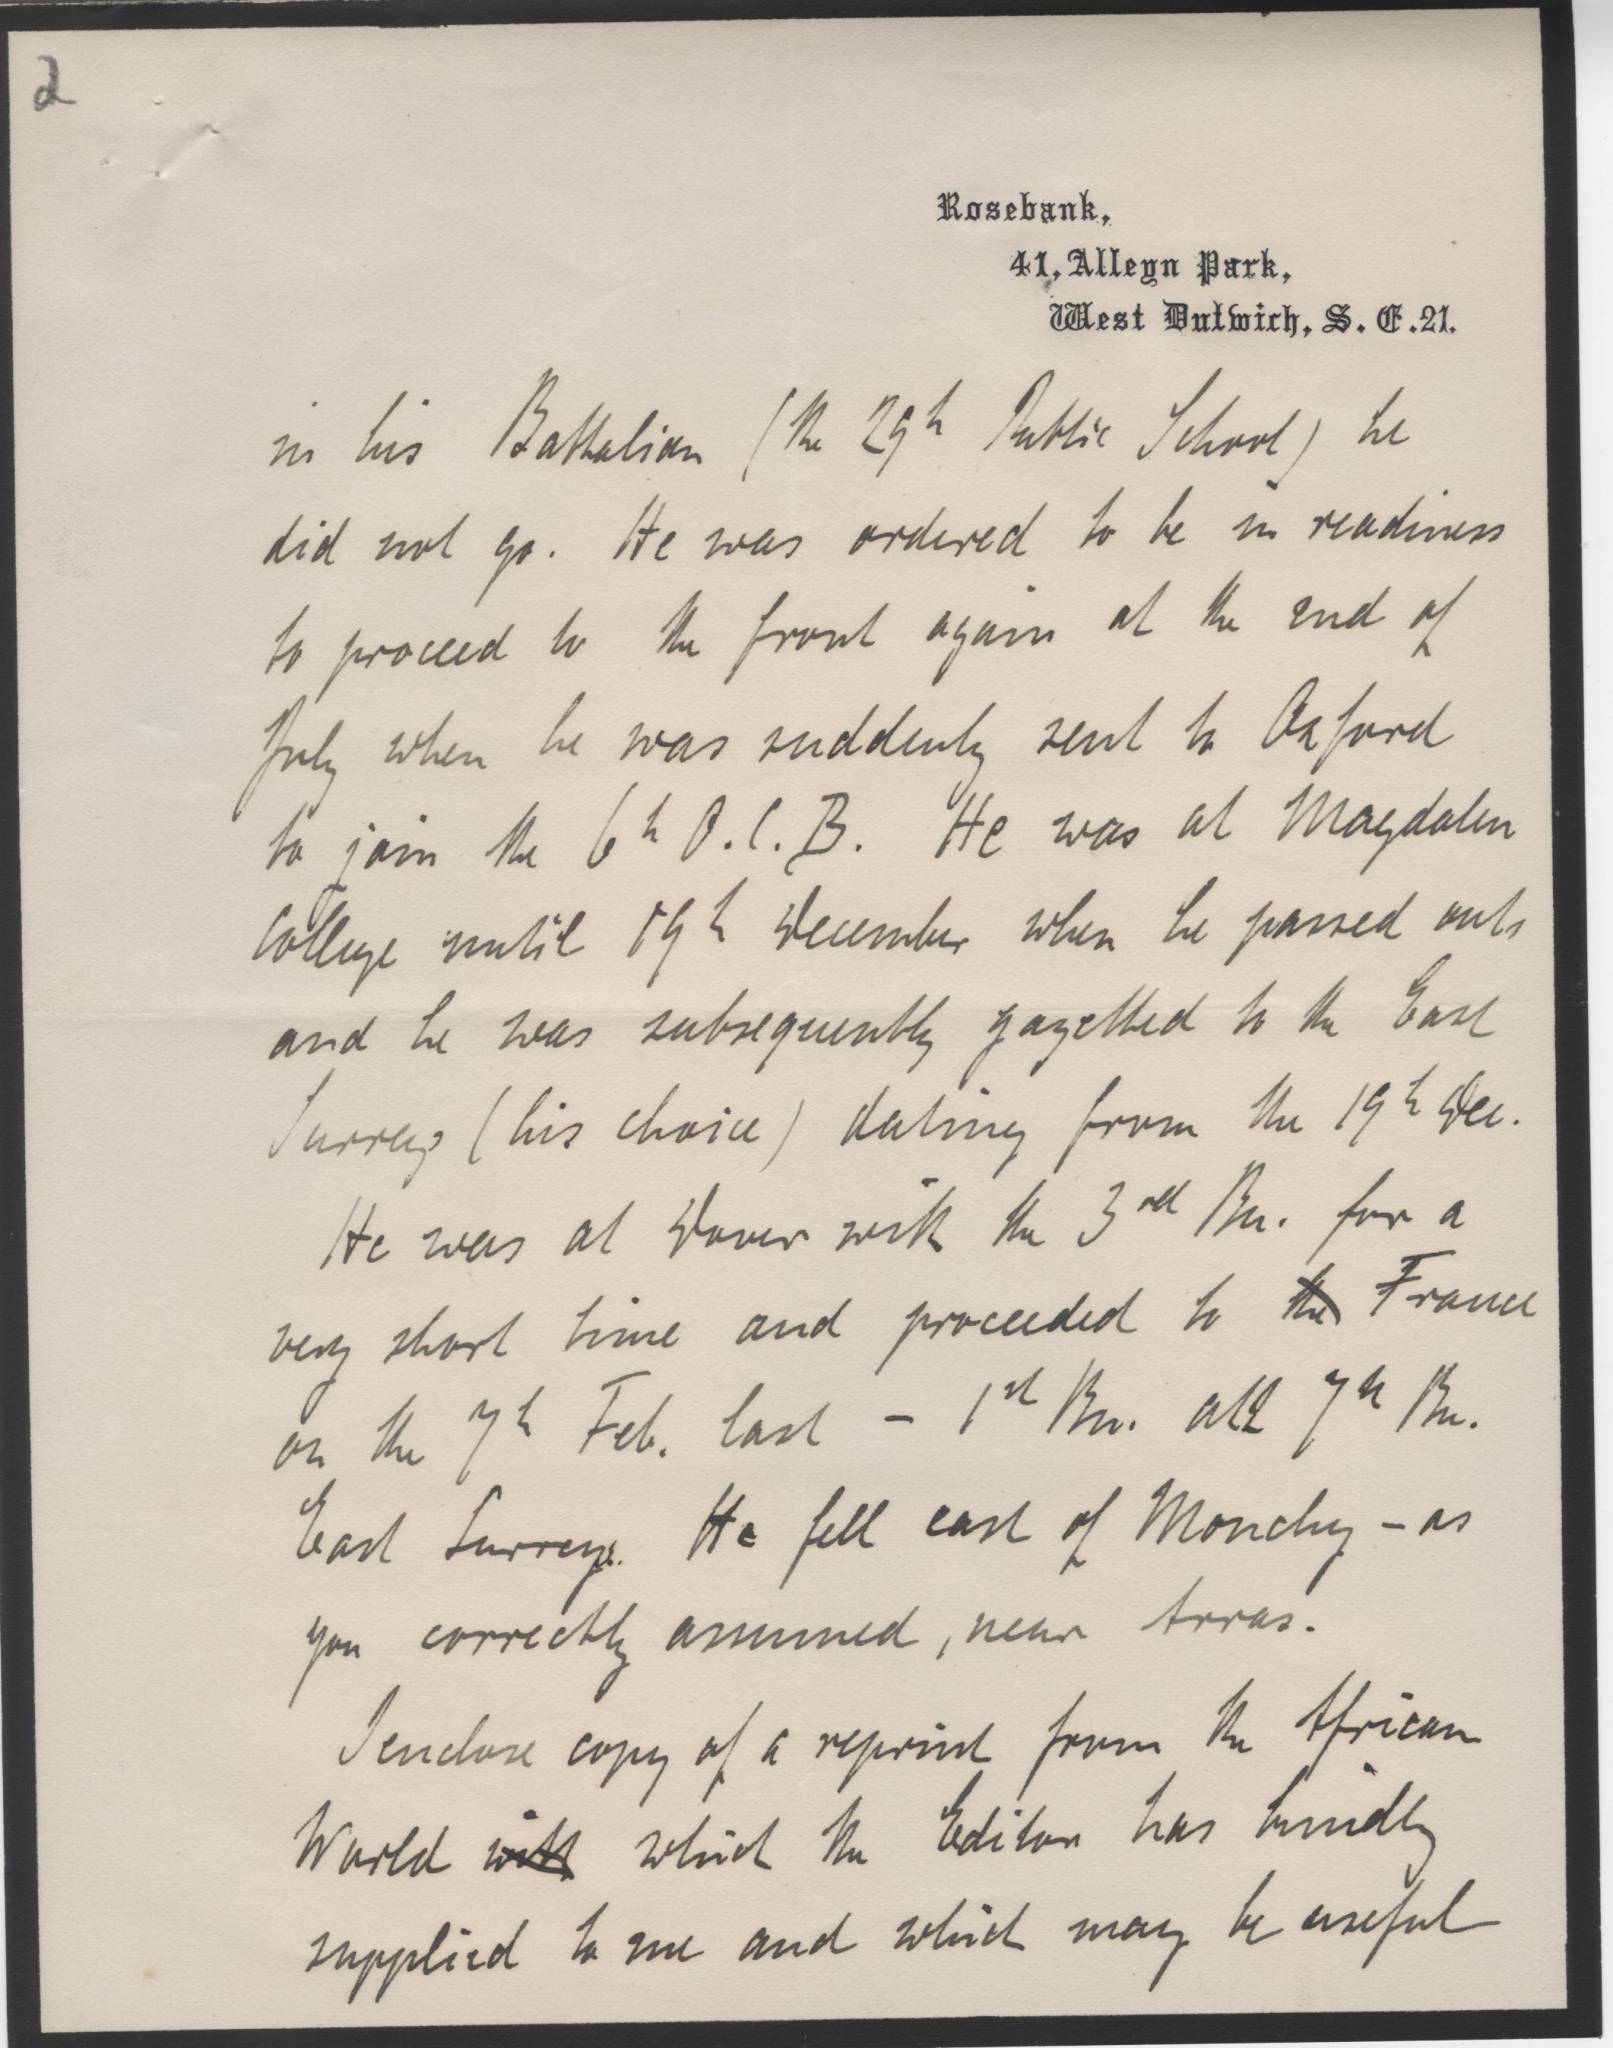 2
Rosebank,
41, Alleyn Park,
West Dulwich, S.E.21.
in his Battalion (the 29th Public School) he
did not go. He was ordered to be in readiness
to proceed to the front again at the end of
July when he was suddenly sent to Oxford
to join the 6th O.C.B. He was at Magdalen
College until 19th December when he passed out
and he was subsequently gazetted to the East
Surreys (his choice) dating from the 19th Dec.
He was at Dover with the 3rd Bn. for a
very short time and proceeded to the France
on the 7th Feb. last - 1st Bn. att 7th Bn.
East Surreys. He fell east of Monchy - as
you correctly assumed, near Arras.
I enclose copy of a reprint from the African
World with which the Editor has kindly
supplied to me and which may be useful